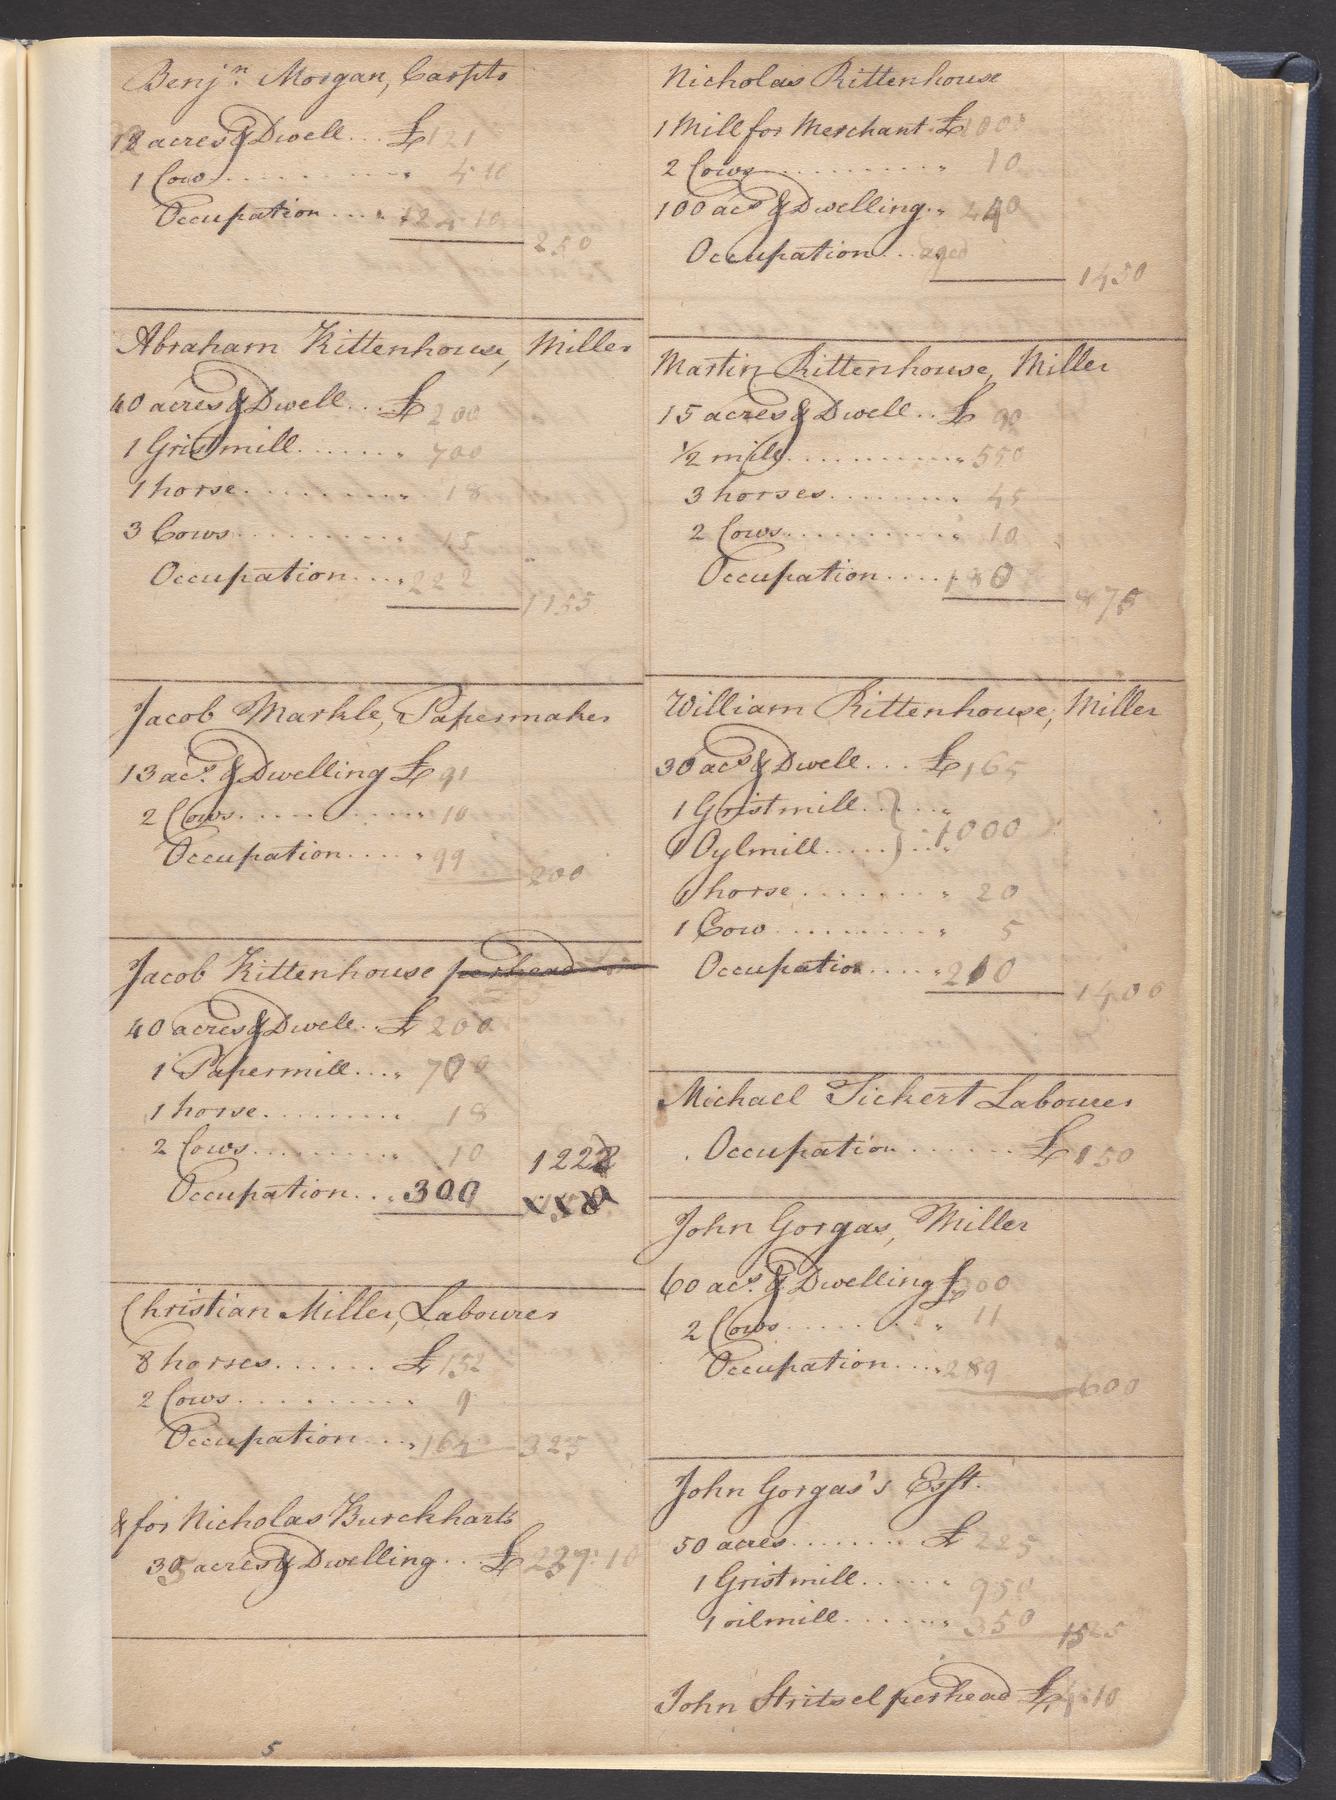 Benjn. Morgan, Carptr
12 acres & Dwell... £121
1 Cow........" 4 10
Occupation...." 124 10
250
Abraham Rittenhouse, Miller
40 acres & Dwell... £200
1 Gristmill......." 700
1 horse.........." 18
3 Cows.......... 15
Occupation...." 222
1155
Jacob Markle, Papermaker
13 acs. & Dwelling £91
2 Cows.........." 10
Occupation....." 99
200
Jacob Rittenhouse perhead
40 acres & Dwell.. £200
1 Papermill...." 700
1 horse.........." 18
2 Cows.........." 10
1228
Occupation...." 300
Christian Miller, Labourer
8 horses...... £152
2 Cows.......... 9
Occupation...." 164
325
& for Nicholas Burckharts
35 acres & Dwelling... £237:10
5
Nicholas Rittenhouse
1 Mill for Merchant £1000
2 Cows.........." 10
100 acs & Dwelling.." 440
Occupation... aged
1450
Martin Rittenhouse, Miller
15 acres & Dwell.. £90
1/2 mill.........." 550
3 horses.......... 45
2 Cows.........." 10
Occupation.... 180
875
William Rittenhouse, Miller
30 acs & Dwell... £165
1 Gristmill....} "
1 Oylmill.....} " 1000
1 horse.........." 20
1 Cow.........." 5
Occupation....." 210
1400
Michael Tickert Labourer
Occupation....... £150
John Gorgas, Miller
60 acs. & Dwelling £300
2 Cows.........." 11
Occupation...." 289
600
John Gorgas's Esst.
50 acres........ £225
1 Gristmill......" 950
1 oilmill......." 350
1525
John Stritsel perhead £4:10